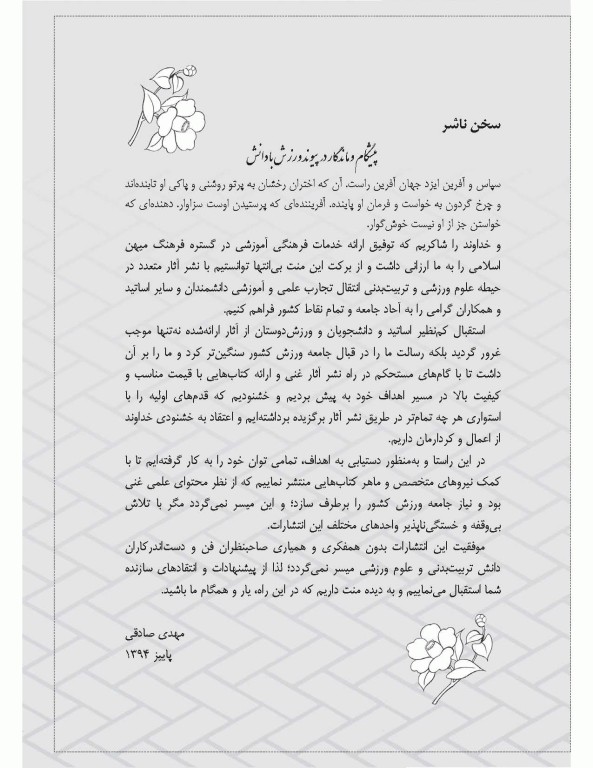 سخن ناشر
پیشگام و ماندگار در پیوند ورزش با دانش
سپاس و آفرین ایزد جهان آفرین راست. آن که اختران رخشان به پرتو روشنی و پاکی او تابنده‌اند
و چرخ گردون به خواست و فرمان او پاینده. آفریننده‌ای که پرستیدن اوست سزاوار. دهنده‌ای که
خواستن جز از او نیست خوش‌گوار.
و خداوند را شاکریم که توفیق ارائه خدمات فرهنگی آموزشی در گستره فرهنگ میهن
اسلامی را به ما ارزانی داشت و از برکت این منت بی‌انتها توانستیم با نشر آثار متعدد در
حیطه علوم ورزشی و تربیت‌بدنی انتقال تجارب علمی و آموزشی دانشمندان و سایر اساتید
و همکاران گرامی را به آحاد جامعه و تمام نقاط کشور فراهم کنیم.
استقبال کم‌نظیر اساتید و دانشجویان و ورزش‌دوستان از آثار ارائه‌شده نه‌تنها موجب
غرور گردید بلکه رسالت ما را در قبال جامعه ورزش کشور سنگین‌تر کرد و ما را بر آن
داشت تا با گام‌های مستحکم در راه نشر آثار غنی و ارائه کتاب‌هایی با قیمت مناسب و
کیفیت بالا در مسیر اهداف خود به پیش بردیم و خشنودیم که قدم‌های اولیه را با
استواری هر چه تمام‌تر در طریق نشر آثار برگزیده برداشته‌ایم و اعتقاد به خشنودی خداوند
از اعمال و کردارمان داریم.
در این راستا و به‌منظور دستیابی به اهداف، تمامی توان خود را به کار گرفته‌ایم تا با
کمک نیروهای متخصص و ماهر کتاب‌هایی منتشر نماییم که از نظر محتوای علمی غنی
بود و نیاز جامعه ورزش کشور را برطرف سازد؛ و این میسر نمی‌گردد مگر با تلاش
بی‌وقفه و خستگی‌ناپذیر واحدهای مختلف این انتشارات.
موفقیت این انتشارات بدون همفکری و همیاری صاحبنظران فن و دست‌اندرکاران
دانش تربیت‌بدنی و علوم ورزشی میسر نمی‌گردد؛ لذا از پیشنهادات و انتقادهای سازنده
شما استقبال می‌نماییم و به دیده منت داریم که در این راه، یار و همگام ما باشید.
مهدی صادقی
پاییز ۱۳۹۴